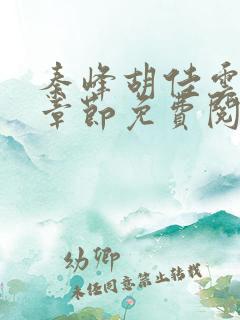 秦峰胡佳雲
章節免費閱
幼卿
未经同意禁止转载